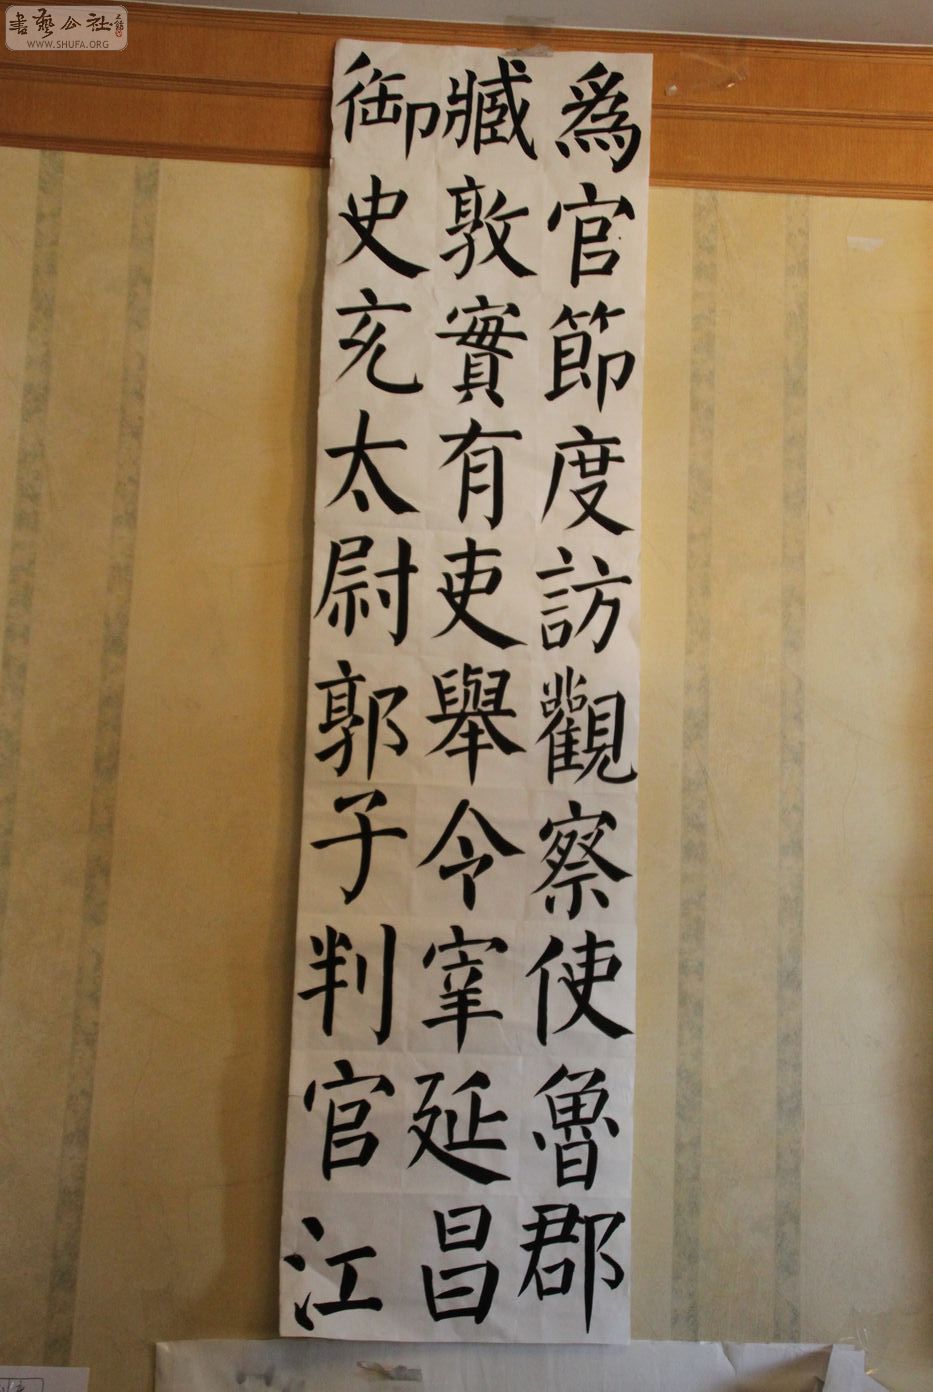 書藝公社
WWW.SHUFA.ORG
為官節度訪觀察使魯郡
臧敦實有吏舉令宰延昌
御史充太尉郭子判官江